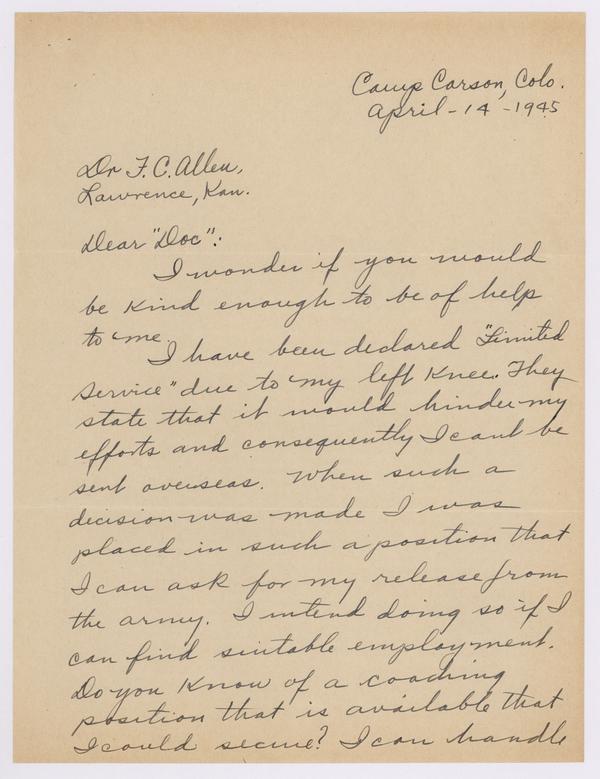 Camp Carson, Colo.
April - 14 - 1945
Dr F. C. Allen,
Lawrence, Kan.
Dear "Doc":
I wonder if you would
be kind enough to be of help
to me.
I have been declared "Limited
Service" due to my left knee. They
state that it would hinder my
efforts and consequently I cant be
sent overseas. When such a
decision was made I was
placed in such a position that
I can ask for my release from
the army. I intend doing so if I
can find suitable employment.
Do you know of a coaching
position that is available that
I could secure? I can handle